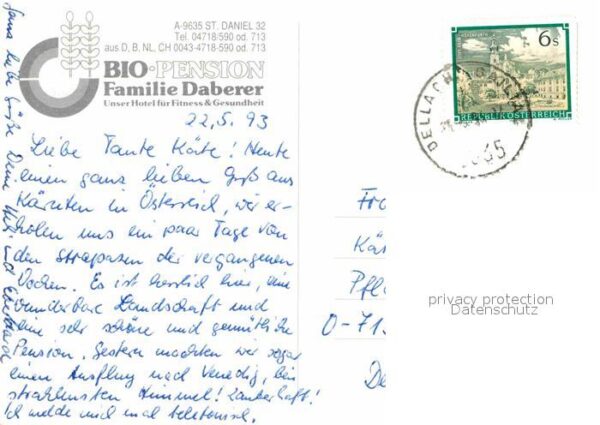 A-9635 ST. DANIEL 32
Tel. 04718-590 od. 713
aus D, B, NL, CH 0043-4718-590 od. 713
BIO·PENSION
Familie Daberer
Unser Hotel für Fitness & Gesundheit
22.5.93
Liebe Tante Käte! Heute
einen ganz lieben Gruß aus
Kärnten in Österreich, wir er-
holen uns ein paar Tage von
den Strapazen der vergangenen
Wochen. Es ist herrlich hier, eine
wunderbare Landschaft und
eine sehr schöne und gemütliche
Pension. Gestern machten wir sogar
einen Ausflug nach Venedig, bei
strahlensten Himmel! Zauberhaft!
Ich melde mich mal telefonisch.
Ganz liebe Grüße Deine
und Eberhard
6s
REPUBLIK ÖSTERREICH
DELLACH
Fr
Kä
Pfl
O-713
De
privacy protection
Datenschutz